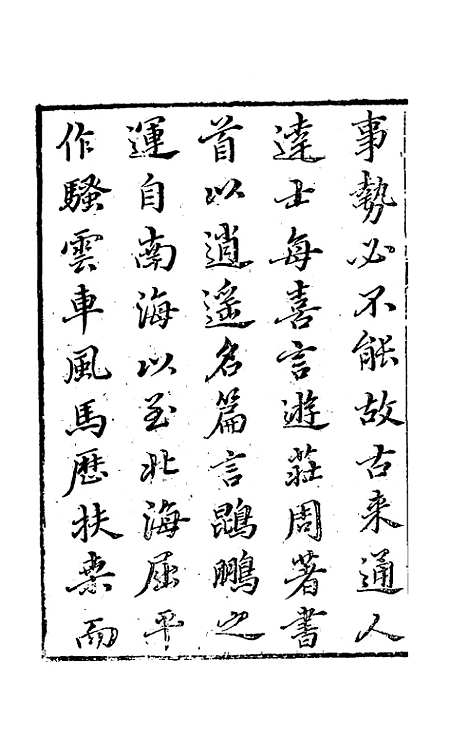 事勢必不能故古来通人
達士每喜言遊莊周著書
首以逍遥名篇言鵾鵬之
運自南海以至北海屈平
作騷雲車風馬歷扶桒而